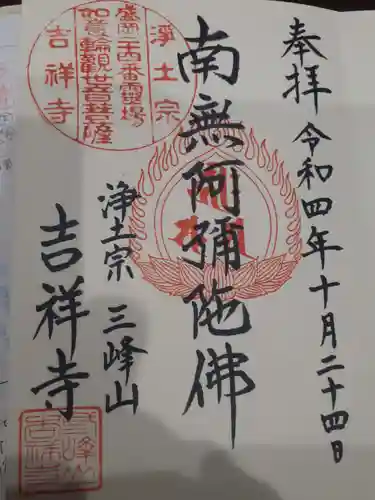 奉拝 令和四年十月二十四日
南無阿彌陀佛
浄土宗 三峰山
吉祥寺
浄土宗
盛岡三十四番霊場
如意輪観世音菩薩
吉祥寺